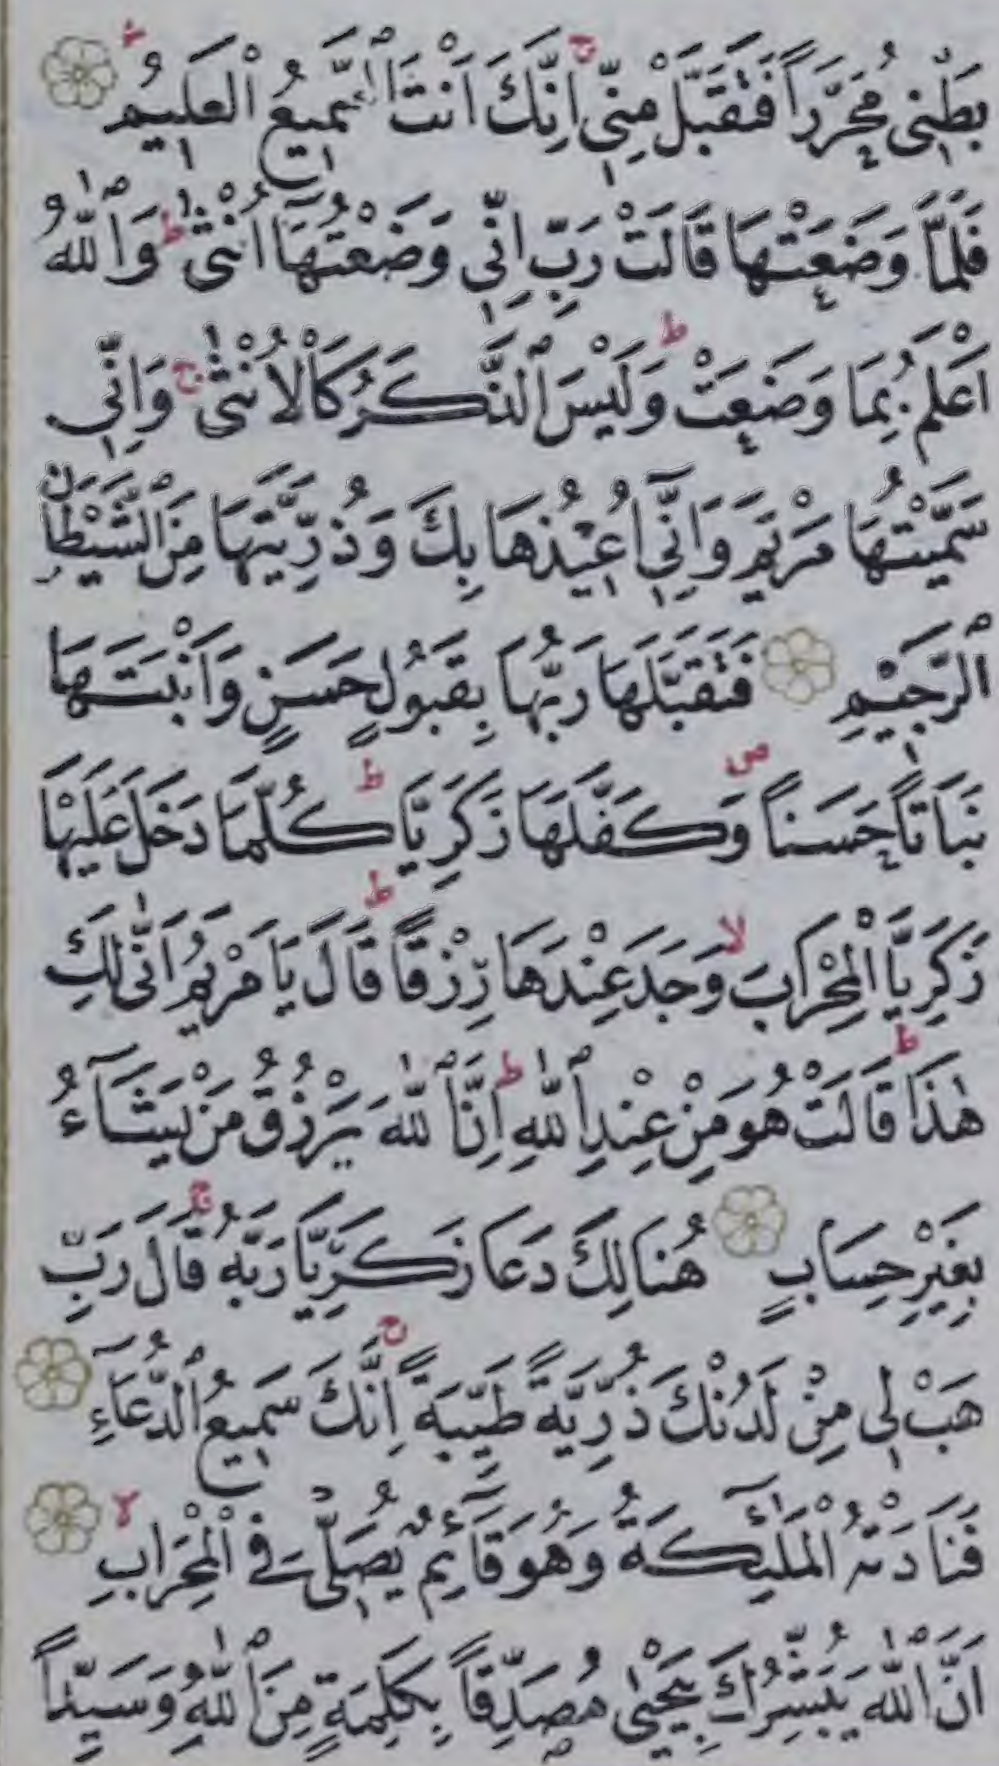 بَطْنِى مُحَرَّرًا فَتَقَبَّلْ مِنِّى اِنَّكَ اَنْتَ السَّمِيعُ الْعَلِيمُ
فَلَمَّا وَضَعَتْهَا قَالَتْ رَبِّ اِنِّى وَضَعْتُهَٓا اُنْثٰىۜ وَاللّٰهُ
اَعْلَمُ بِمَا وَضَعَتْ وَلَيْسَ الذَّكَرُ كَالْاُنْثٰى وَاِنِّى
سَمَّيْتُهَا مَرْيَمَ وَاِنِّٓى اُعِيذُهَا بِكَ وَذُرِّيَّتَهَا مِنَ الشَّيْطَانِ
الرَّجِيمِ فَتَقَبَّلَهَا رَبُّهَا بِقَبُولٍ حَسَنٍ وَاَنْبَتَهَا
نَبَاتًا حَسَنًا وَكَفَّلَهَا زَكَرِيَّا كُلَّمَا دَخَلَ عَلَيْهَا
زَكَرِيَّا الْمِحْرَابَ وَجَدَ عِنْدَهَا رِزْقًا قَالَ يَا مَرْيَمُ اَنّٰى لَكِ
هٰذَا قَالَتْ هُوَ مِنْ عِنْدِ اللّٰهِ اِنَّ اللّٰهَ يَرْزُقُ مَنْ يَشَٓاءُ
بِغَيْرِ حِسَابٍ هُنَالِكَ دَعَا زَكَرِيَّا رَبَّهُ قَالَ رَبِّ
هَبْ لِى مِنْ لَدُنْكَ ذُرِّيَّةً طَيِّبَةً اِنَّكَ سَمِيعُ الدُّعَٓاءِ
فَنَادَتْهُ الْمَلٰٓئِكَةُ وَهُوَ قَٓائِمٌ يُصَلِّى فِى الْمِحْرَابِ
اَنَّ اللّٰهَ يُبَشِّرُكَ بِيَحْيٰى مُصَدِّقًا بِكَلِمَةٍ مِنَ اللّٰهِ وَسَيِّدًا